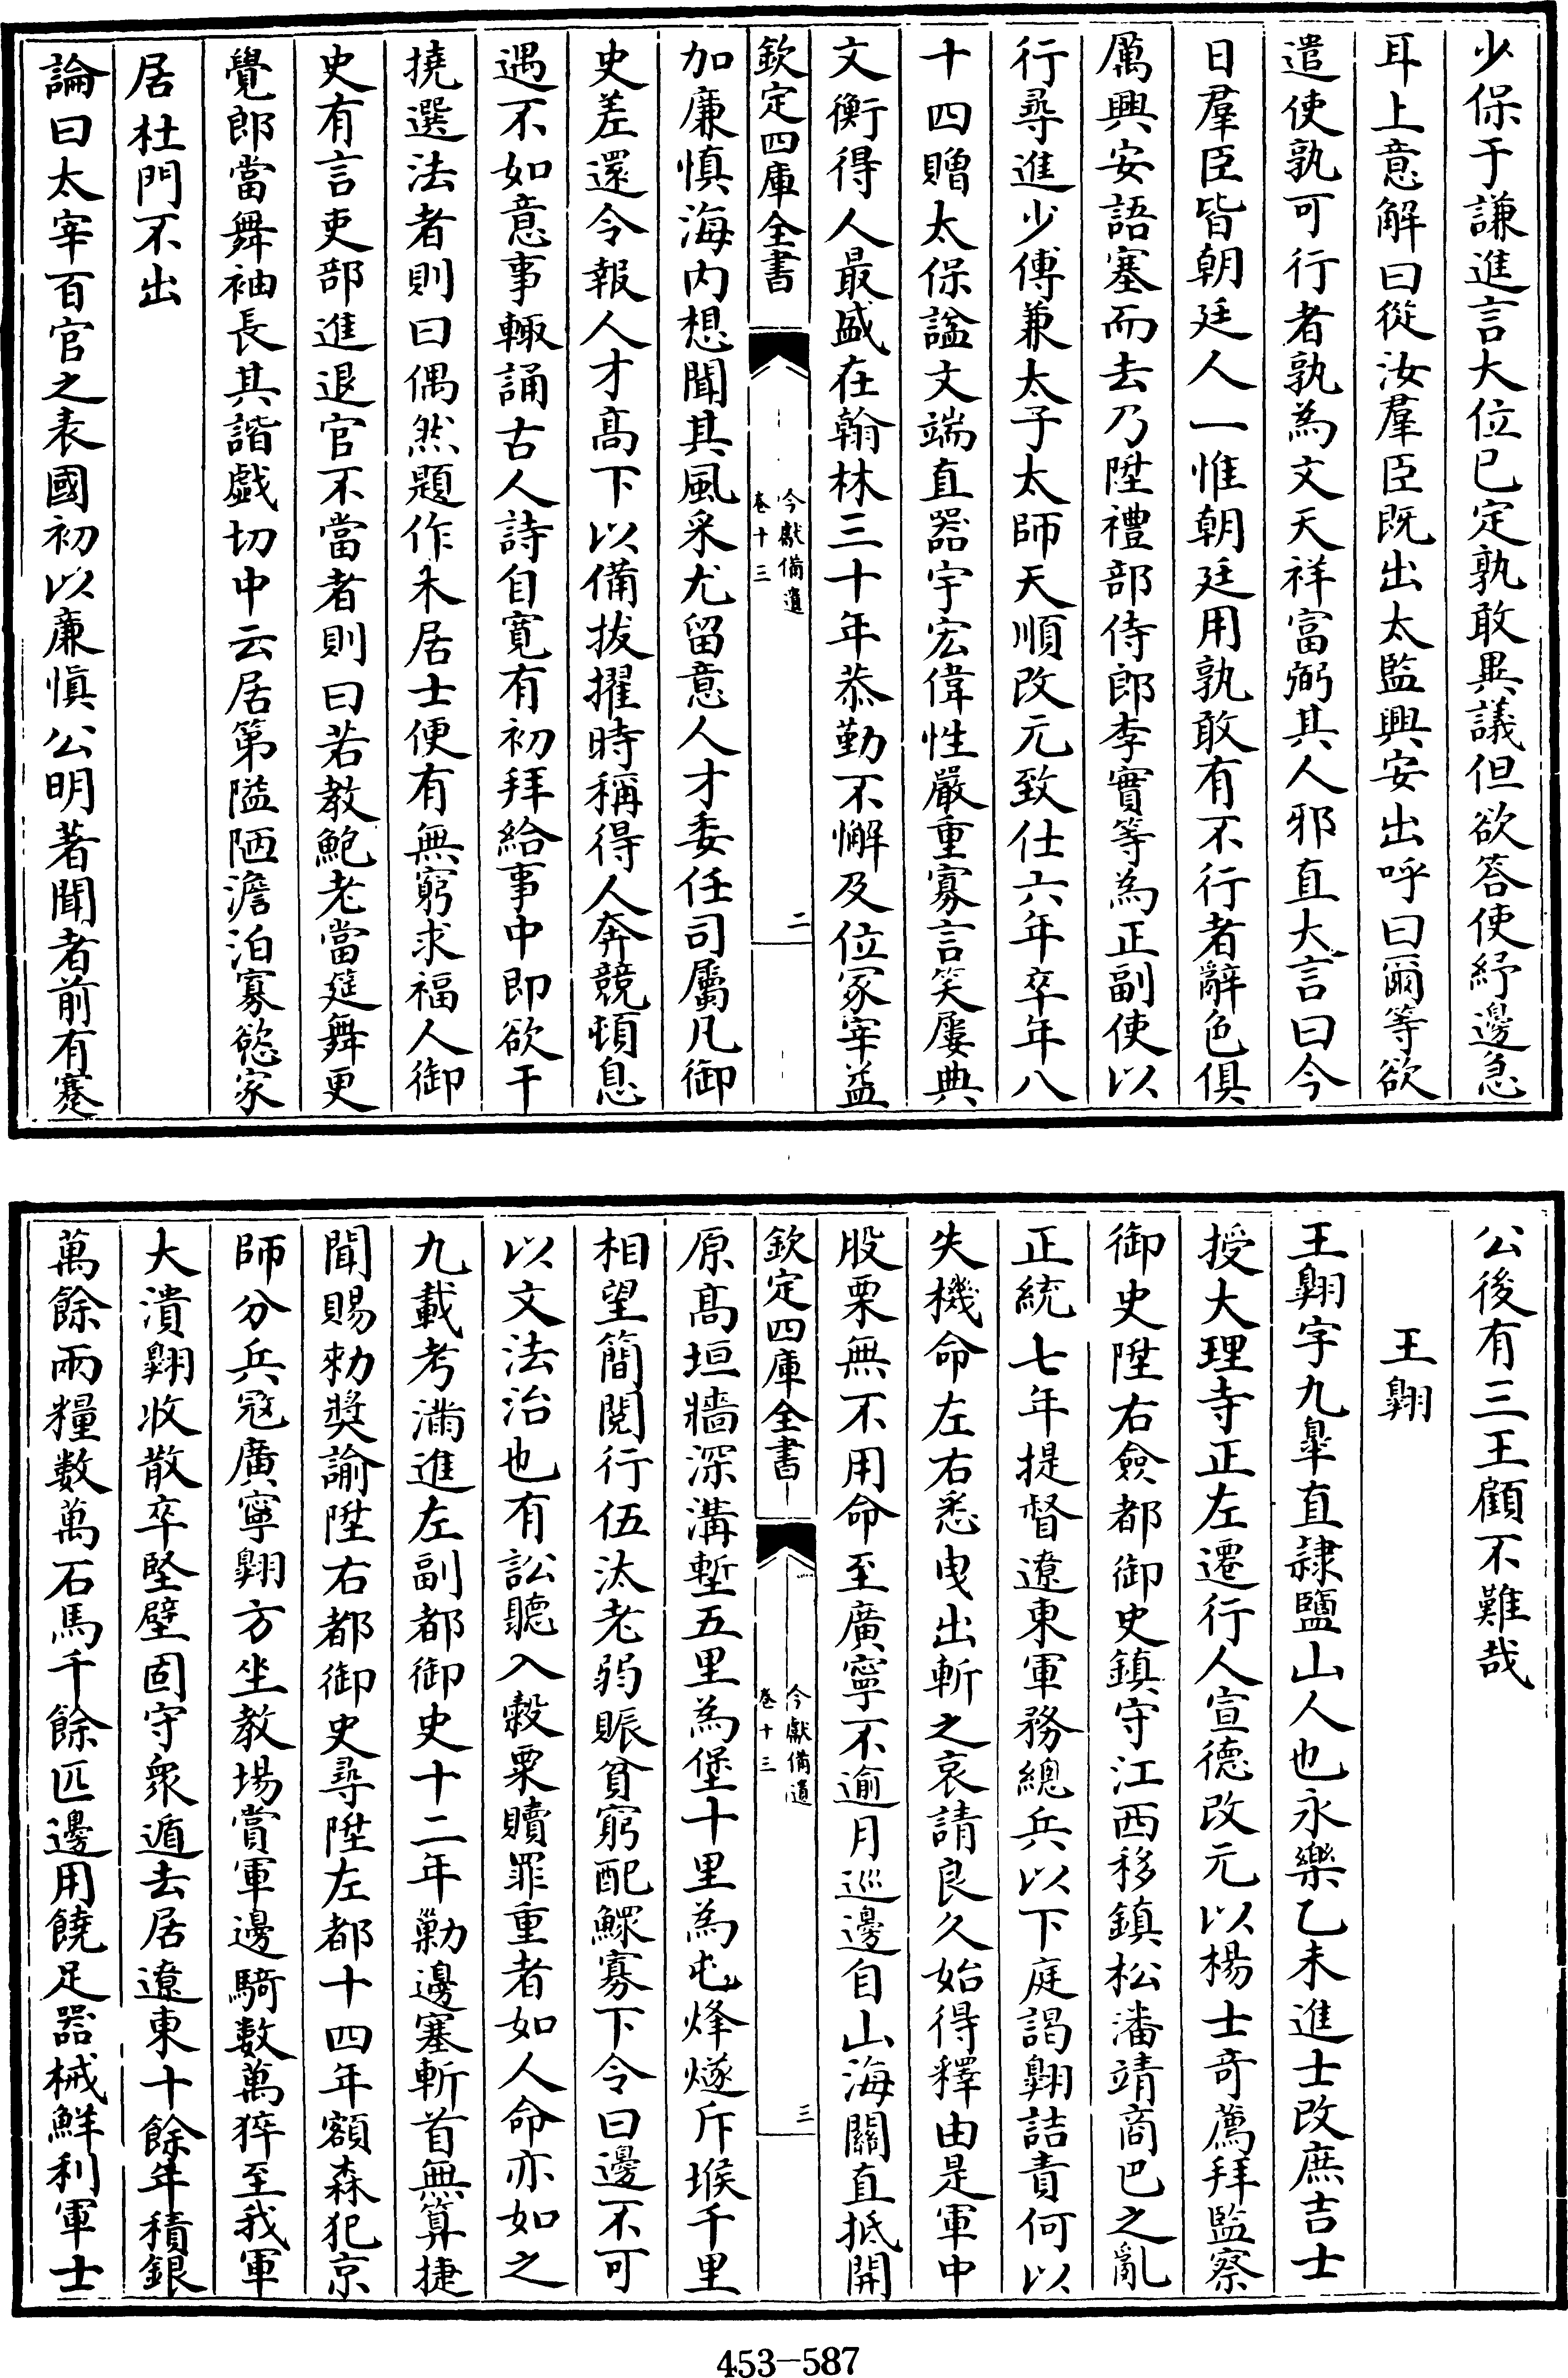 少保于謙進言大位已定孰敢異議但欲答使紓邊急
耳上意解曰從汝羣臣既出太監興安出呼曰爾等欲
遣使孰可行者孰為文天祥富弼其人邪直大言曰今
日羣臣皆朝廷人一惟朝廷用孰敢有不行者辭色俱
厲興安語塞而去乃陞禮部侍郎李實等為正副使以
行尋進少傅兼太子太師天順改元致仕六年卒年八
十四贈太保諡文端直器宇宏偉性嚴重寡言笑屢典
文衡得人最盛在翰林三十年恭勤不懈及位冢宰益
欽定四庫全書
今獻備遺
卷十三
二
加廉慎海内想聞其風采尤留意人才委任司屬凡御
史差還令報人才高下以備拔擢時稱得人奔競頓息
遇不如意事輙誦古人詩自寛有初拜給事中即欲干
撓選法者則曰偶然題作木居士便有無窮求福人御
史有言吏部進退官不當者則曰若教鮑老當筵舞更
覺郎當舞袖長其諧戲切中云居第隘陋澹泊寡慾家
居杜門不出
論曰太宰百官之表國初以廉慎公明著聞者前有蹇
公後有三王顧不難哉
王翺
王翺字九臯直隷鹽山人也永樂乙未進士改庶吉士
授大理寺正左遷行人宣德改元以楊士奇薦拜監察
御史陞右僉都御史鎮守江西移鎮松潘靖商巴之亂
正統七年提督遼東軍務總兵以下庭謁翺詰責何以
失機命左右悉曳出斬之哀請良久始得釋由是軍中
股栗無不用命至廣寧不逾月巡邊自山海關直抵開
欽定四庫全書
今獻備遺
卷十三
三
原高垣牆深溝塹五里為堡十里為屯烽燧斥堠千里
相望簡閱行伍汰老弱賑貧窮配鰥寡下令曰邊不可
以文法治也有訟聽入穀粟贖罪重者如人命亦如之
九載考滿進左副都御史十二年勦邊塞斬首無算捷
聞賜勑獎諭陞右都御史尋陞左都十四年額森犯京
師分兵寇廣寧翺方坐教場賞軍邊騎數萬猝至我軍
大潰翺收散卒堅壁固守衆遁去居遼東十餘年積銀
萬餘兩糧数萬石馬千餘匹邊用饒足器械鮮利軍士
453-587